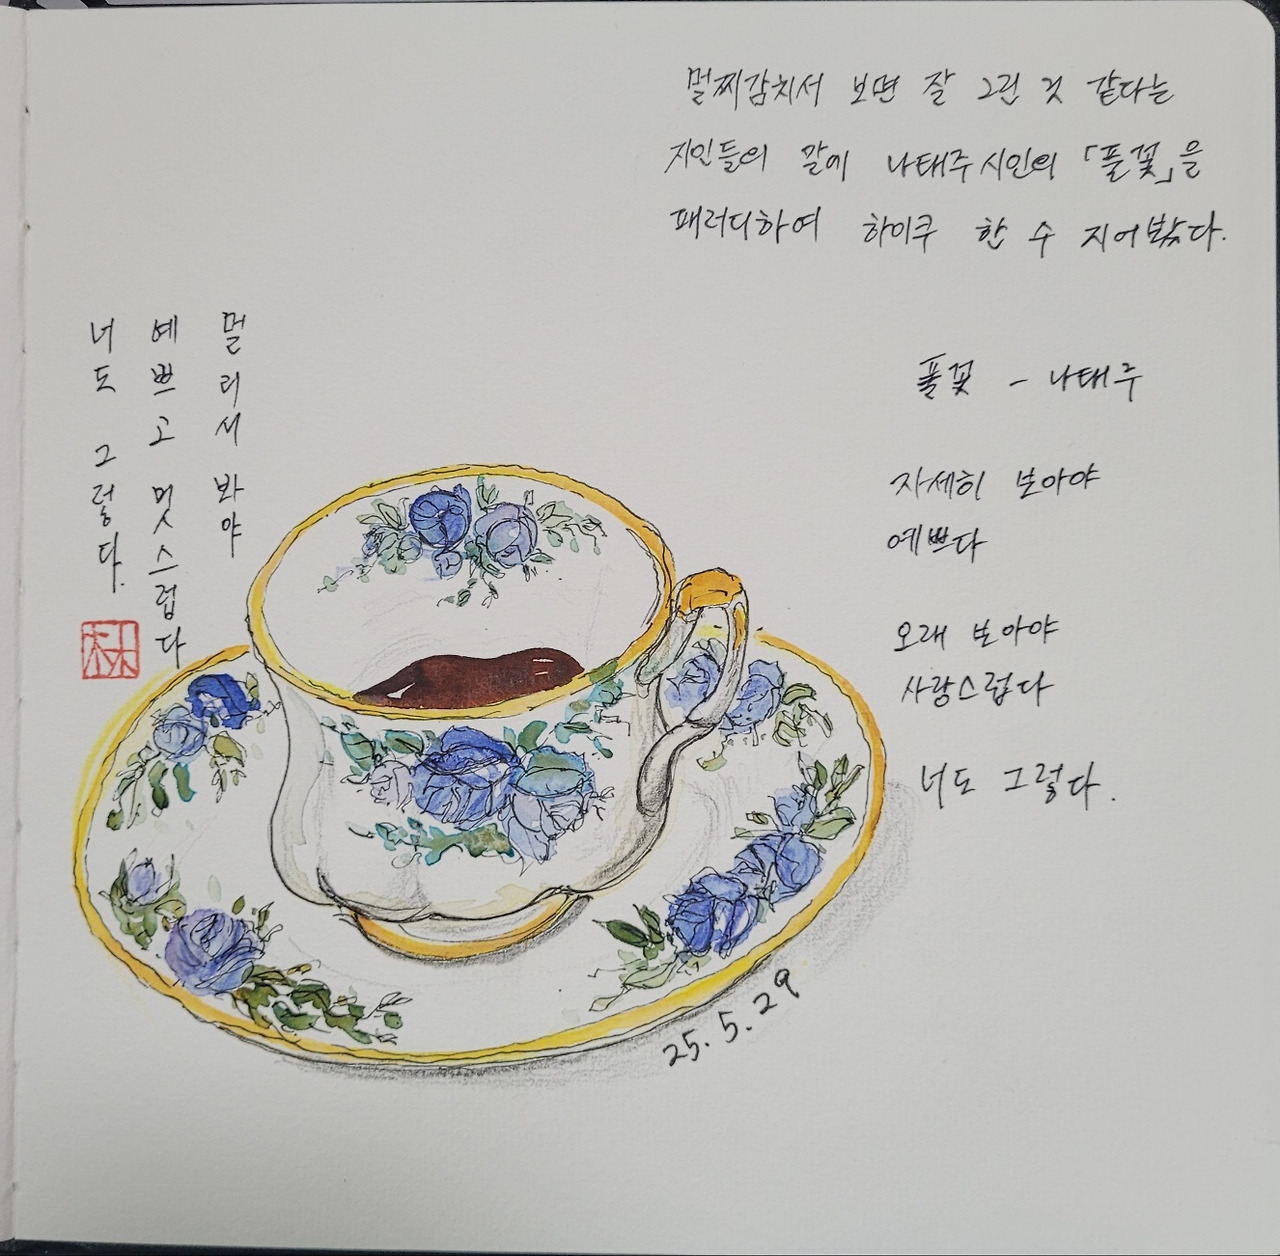 멀찌감치서 보면 잘 그린 것 같다는
지인들의 말에 나태주 시인의 「풀꽃」을
패러디하여 하이쿠 한 수 지어봤다.
멀리서 봐야
예쁘고 멋스럽다
너도 그렇다.
풀꽃 - 나태주
자세히 보아야
예쁘다
오래 보아야
사랑스럽다
너도 그렇다.
25. 5. 29